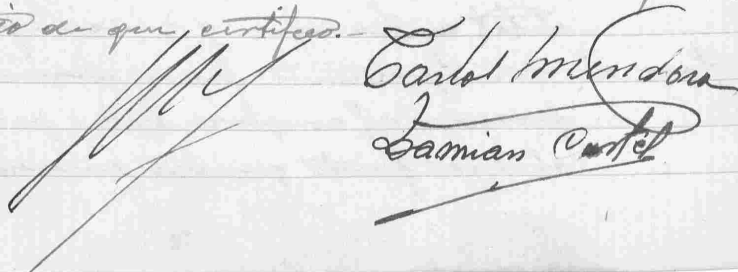 de que certifico.-
Carlos Mendoza
Damian Castel